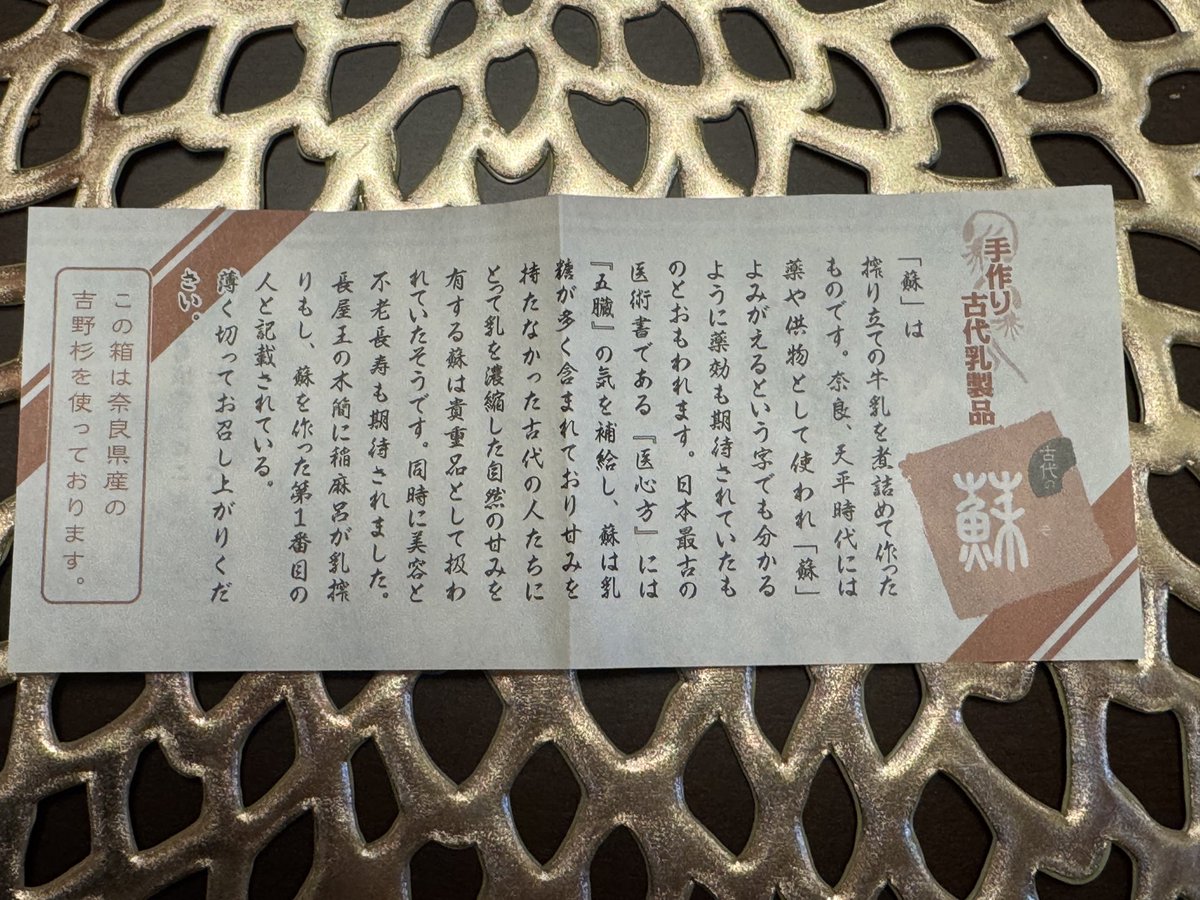 手作り
古代乳製品
古代の
蘇
「蘇」は
搾り立ての牛乳を煮詰めて作った
ものです。奈良、天平時代には
薬や供物として使われ「蘇」
よみがえるという字でも分かる
ように薬効も期待されていたも
のとおもわれます。日本最古の
医術書である『医心方』には
『五臓』の気を補給し、蘇は乳
糖が多く含まれており甘みを
持たなかった古代の人たちに
とって乳を濃縮した自然の甘みを
有する蘇は貴重品として扱わ
れていたそうです。同時に美容と
不老長寿も期待されました。
長屋王の木簡に稲麻呂が乳搾
りもし、蘇を作った第1番目の
人と記載されている。
薄く切ってお召し上がりくだ
さい。
この箱は奈良県産の
吉野杉を使っております。